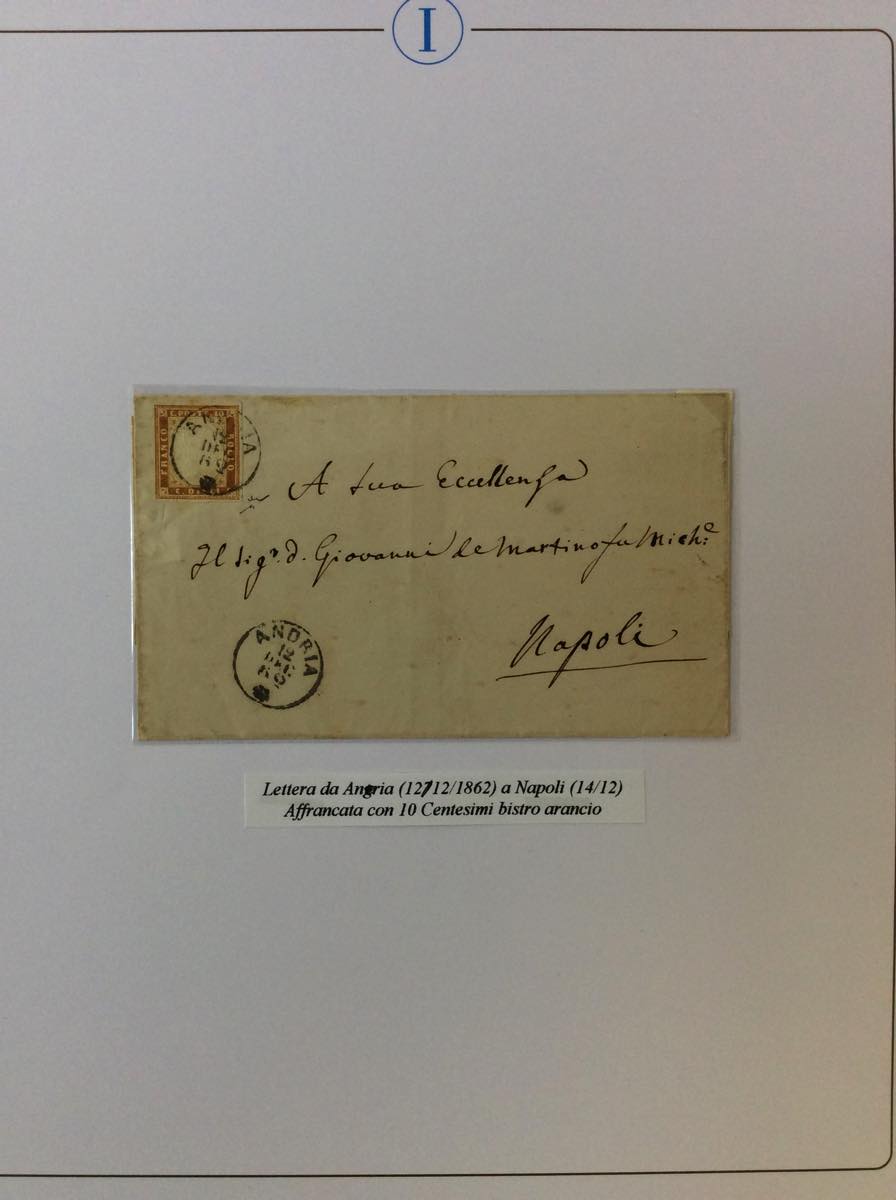 I
C. DI
10
FRANCO
BOLLO
ANDRIA
12
DIC
62
A Sua Eccellenza
Il Sigr. D. Giovanni de Martino fu Miche
Napoli
ANDRIA
12
DIC
62
Lettera da Andria (12/12/1862) a Napoli (14/12)
Affrancata con 10 Centesimi bistro arancio